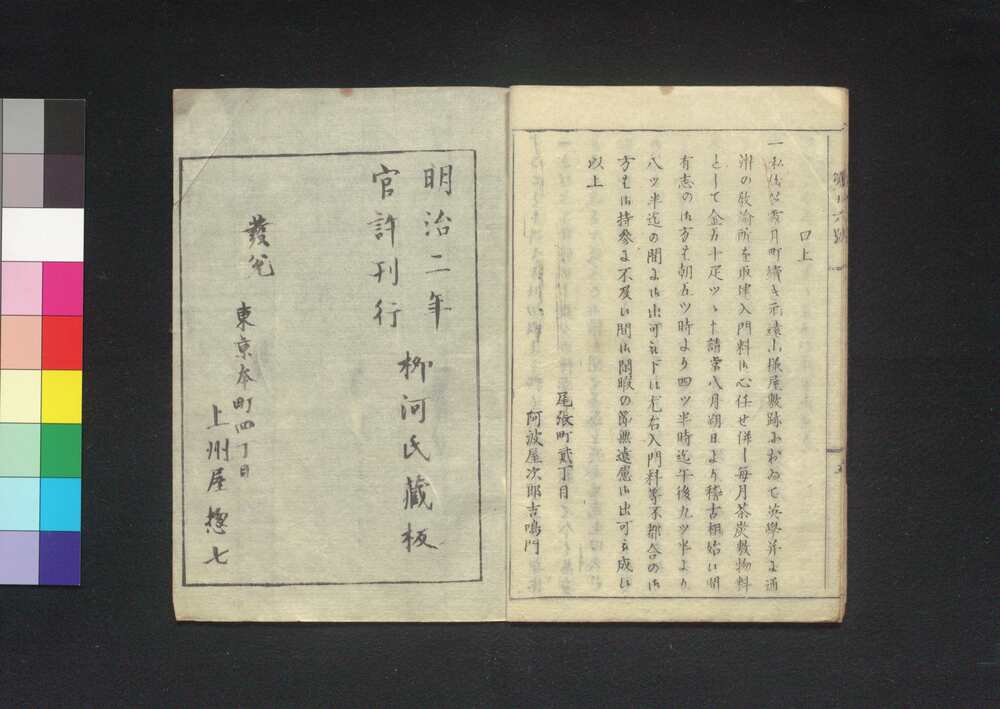 口上
一私儀今般霞月町続き元遠山様屋敷跡ニおゐて英学并ニ通
辨の教諭所を取建入門料御心任せ併し毎月茶炭敷物料
として金五十疋ツヽ申請来八月朔日より稽古相始候間
有志の御方は朝五ツ時より四ツ半時迄午後九ツ半より
八ツ半迄の間に御出可被下候尤右入門料等不都合の御
方は御持参に不及候間御閑暇の節無遠慮御出可被成候
以上
尾張町貳丁目
阿波屋次郎吉鳴門
明治二年
官許刊行
柳河氏藏板
發兌
東京本町四丁目
上州屋惣七